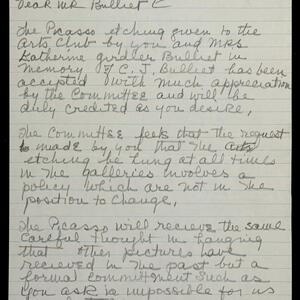 Dear Mr Bulliet
The Picasso etching given to the
Arts Club by you and Mrs
Katherine Girdler Bulliet in
Memory of C. J. Bulliet has been
accepted with much appreciation
by the Committee and will be
duly credited as you desire,
The Committee feels that the request
made by you that the
etching be hung at all times
in the galleries involves a
policy which are not in the
position to change,
The Picasso will recieve the same
careful thought in hanging
that other pictures have
recieved in the past but a
formal committment such as
you ask is impossible for us